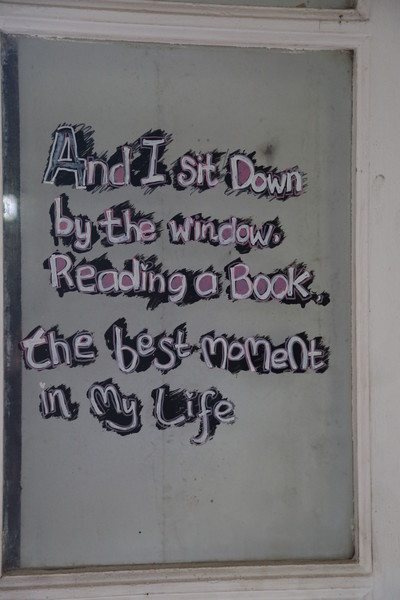 And I sit Down
by the window.
Reading a Book,
the best moment
in My Life